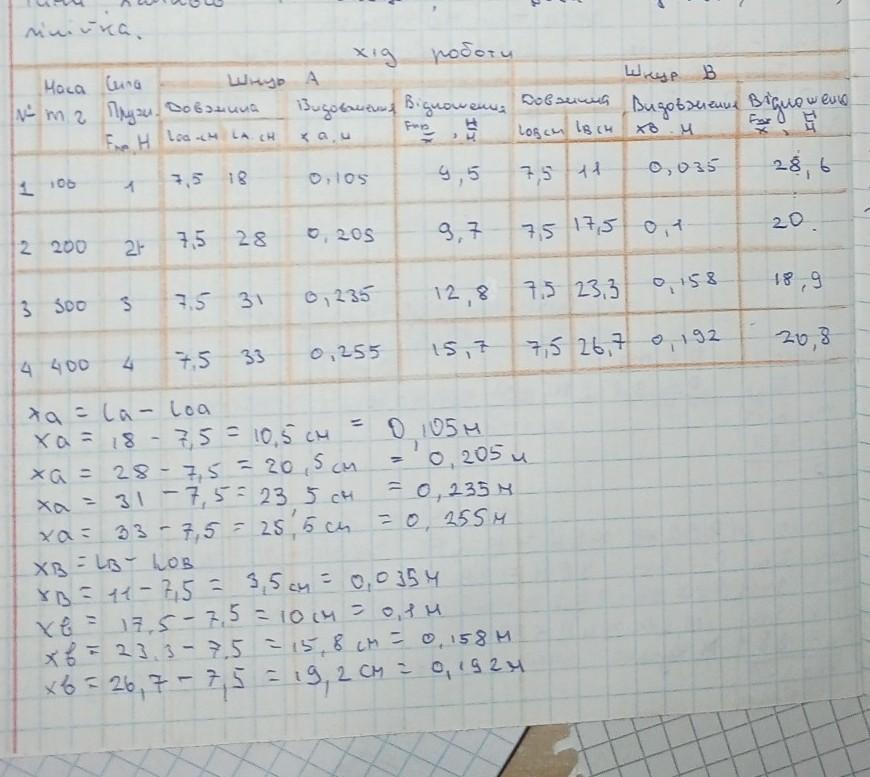 лінійка.
Хід роботи
№ Маса m, г Сила Пружн. Fпр, Н Шнур А Шнур В
Довжина Видовження Відношення Довжина Видовження Відношення
Loa см La, см xa, м Fпр/x, Н/м LoB см lB см xв, м Fпр/x, Н/м
1 100 1 7,5 18 0,105 9,5 7,5 11 0,035 28,6
2 200 2 7,5 28 0,205 9,7 7,5 17,5 0,1 20.
3 300 3 7,5 31 0,235 12,8 7,5 23,3 0,158 18,9
4 400 4 7,5 33 0,255 15,7 7,5 26,7 0,192 20,8
xa = La - Loa
xa = 18 - 7,5 = 10,5 см = 0,105м
xa = 28 - 7,5 = 20,5см = 0,205 м
xa = 31 - 7,5 = 23,5 см = 0,235 м
xa = 33 - 7,5 = 25,5 см = 0,255 м
xB = LB - LOB
xB = 11 - 7,5 = 3,5 см = 0,035м
xв = 17,5 - 7,5 = 10 см = 0,1 м
xв = 23,3 - 7,5 = 15,8 см = 0,158 м
xв = 26,7 - 7,5 = 19,2 см = 0,192 м